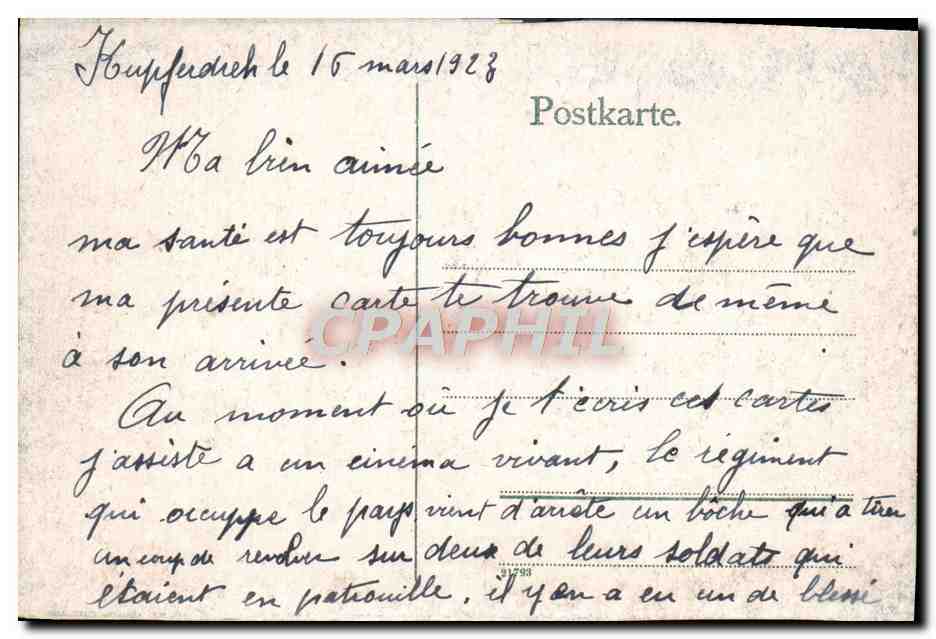 Kupferdreh le 16 mars 1923
Postkarte.
Ma bien aimée
ma santé est toujours bonnes j'espère que
ma présente carte te trouve de même
à son arrivée.
CPAPHIL
Au moment où je t'écris ces cartes
j'assiste a un cinéma vivant, le régiment
qui occuppe le pays vient d'arrôte un bôche qui a tirer
un coup de revolver sur deux de leurs soldats qui
21793
étaient en patrouille, il y en a eu un de blessé